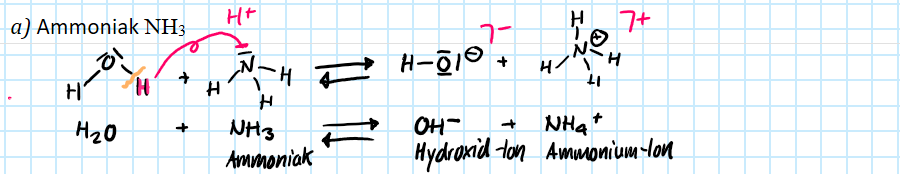 a) Ammoniak NH3
H+
H-O|⊖ + 7- 7+
H H + H N-H H ⇌ H N⊕ H H H
H2O + NH3 ⇌ OH- + NH4+
Ammoniak Hydroxid-Ion Ammonium-Ion